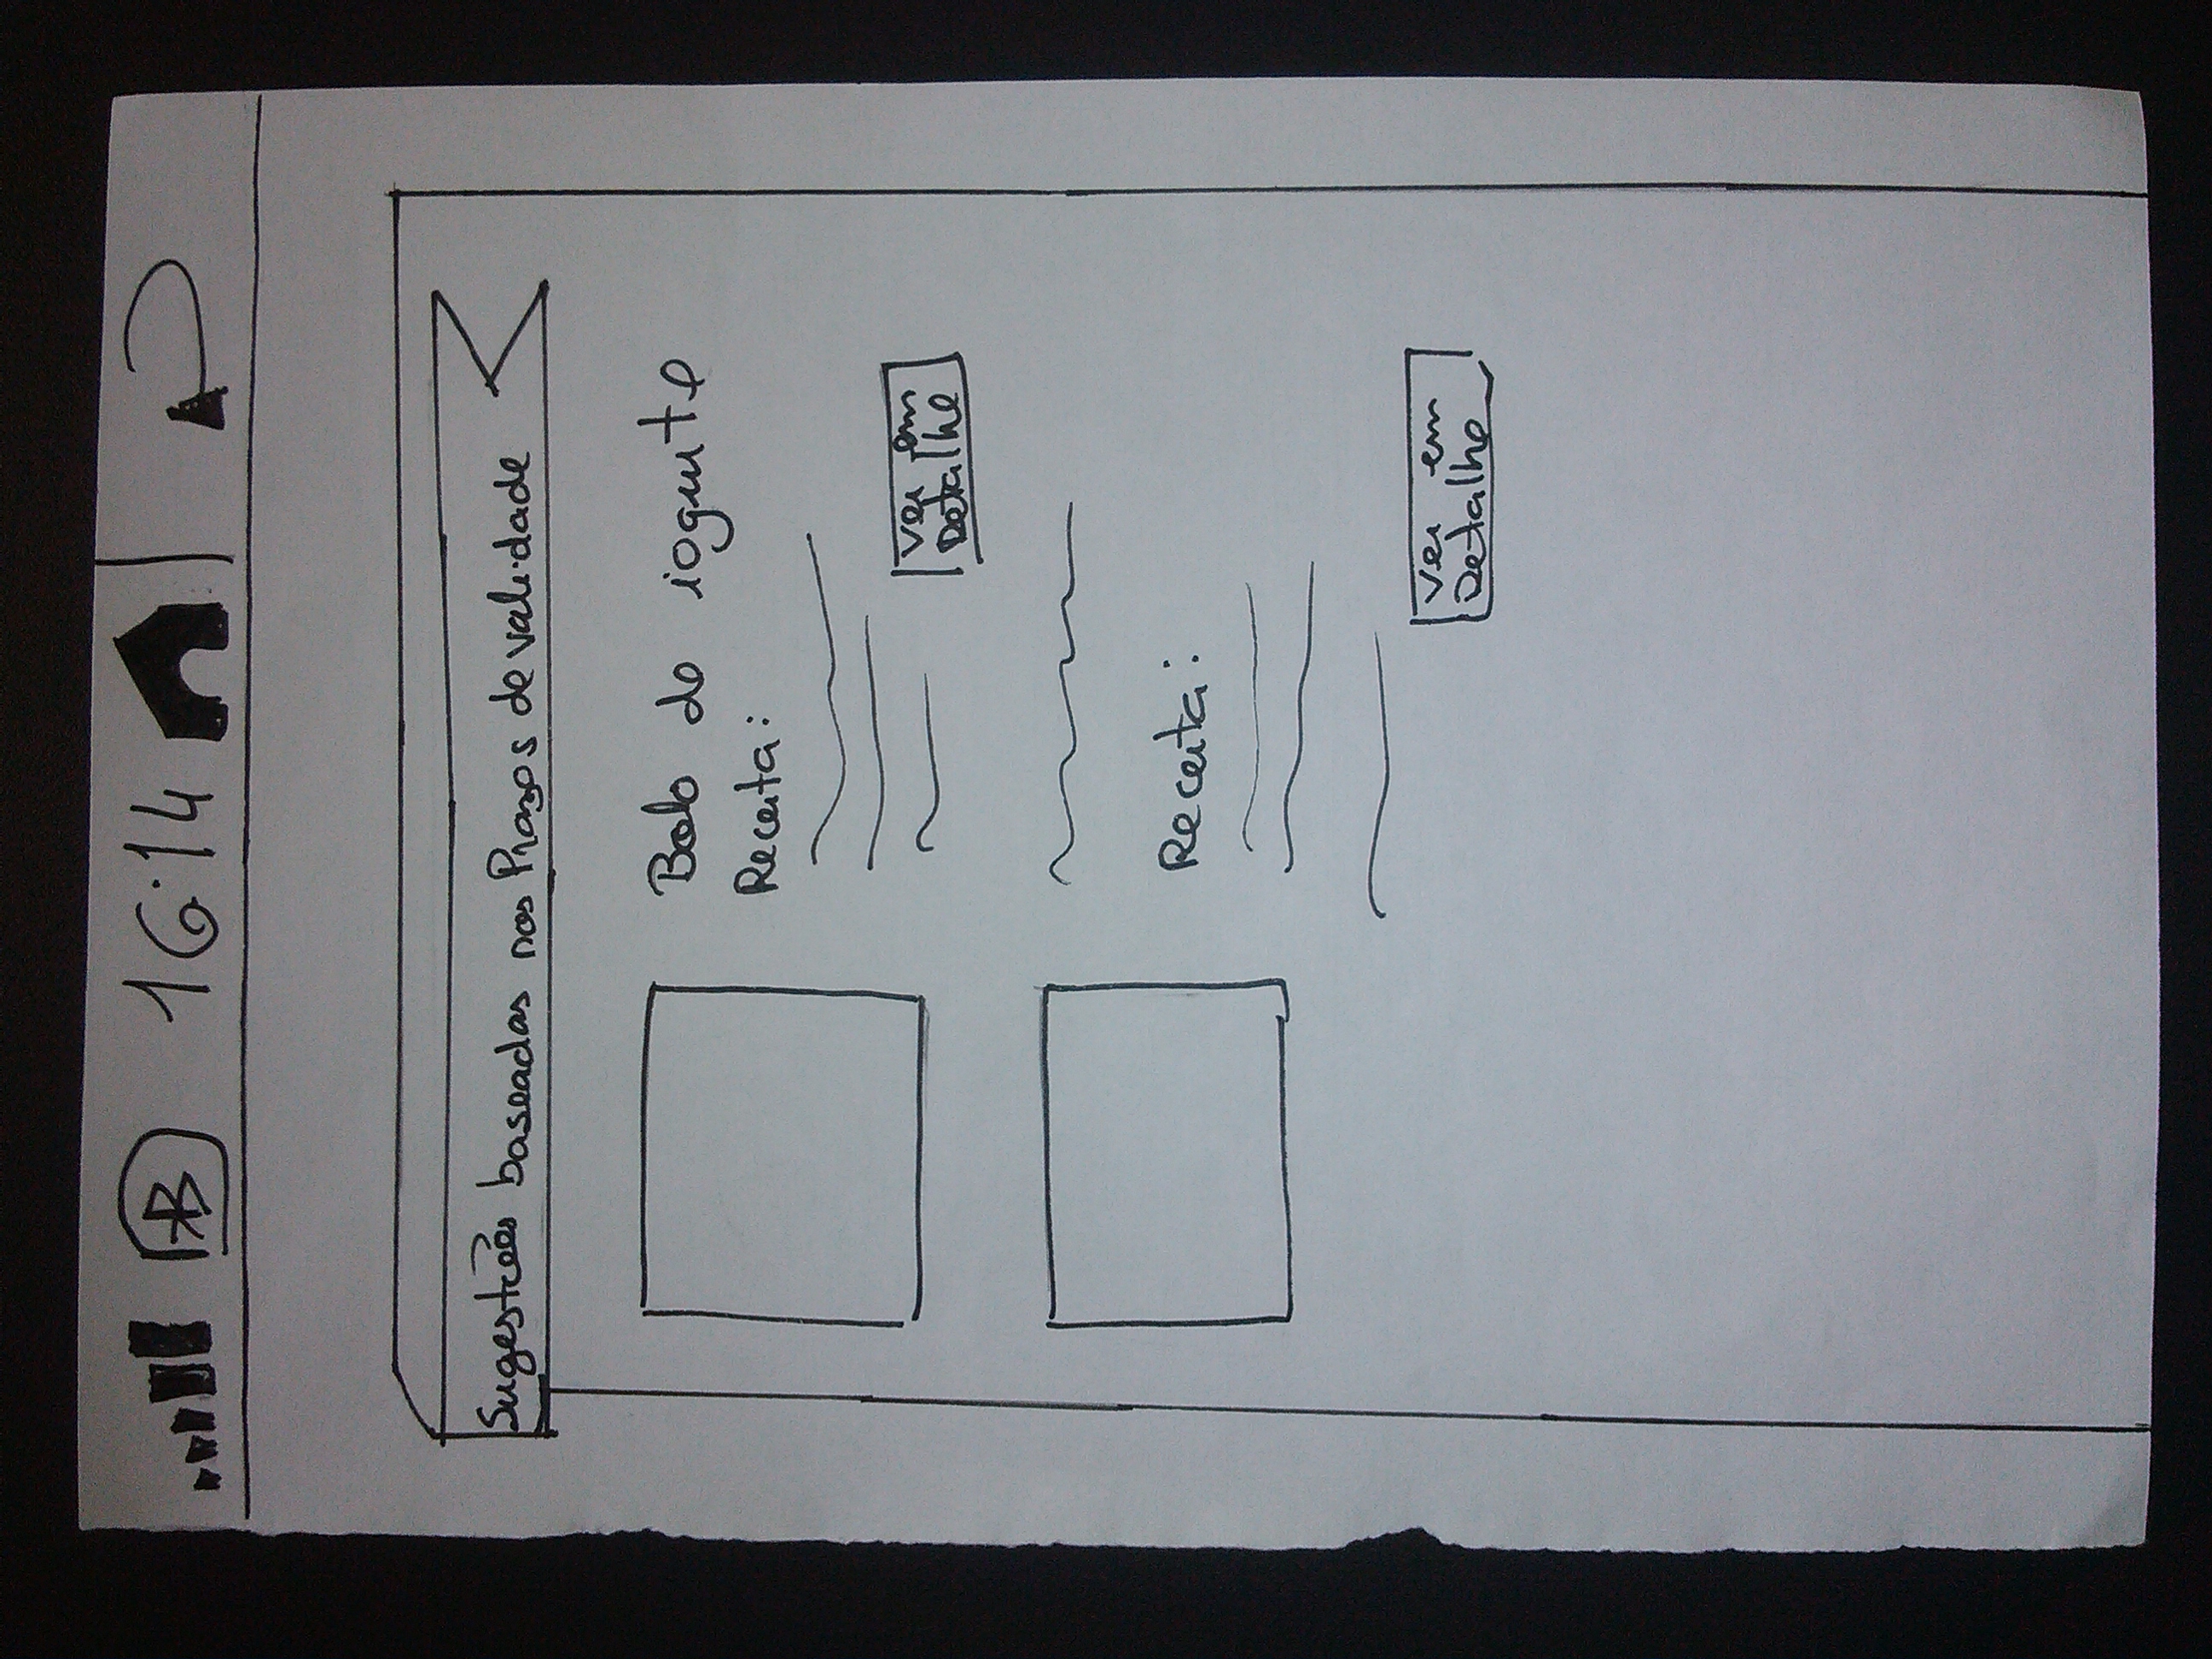 16:14
Sugestões baseadas nos Prazos de validade
Bolo de iogurte
Receita:
Ver em
Detalhe
Receita:
Ver em
Detalhe